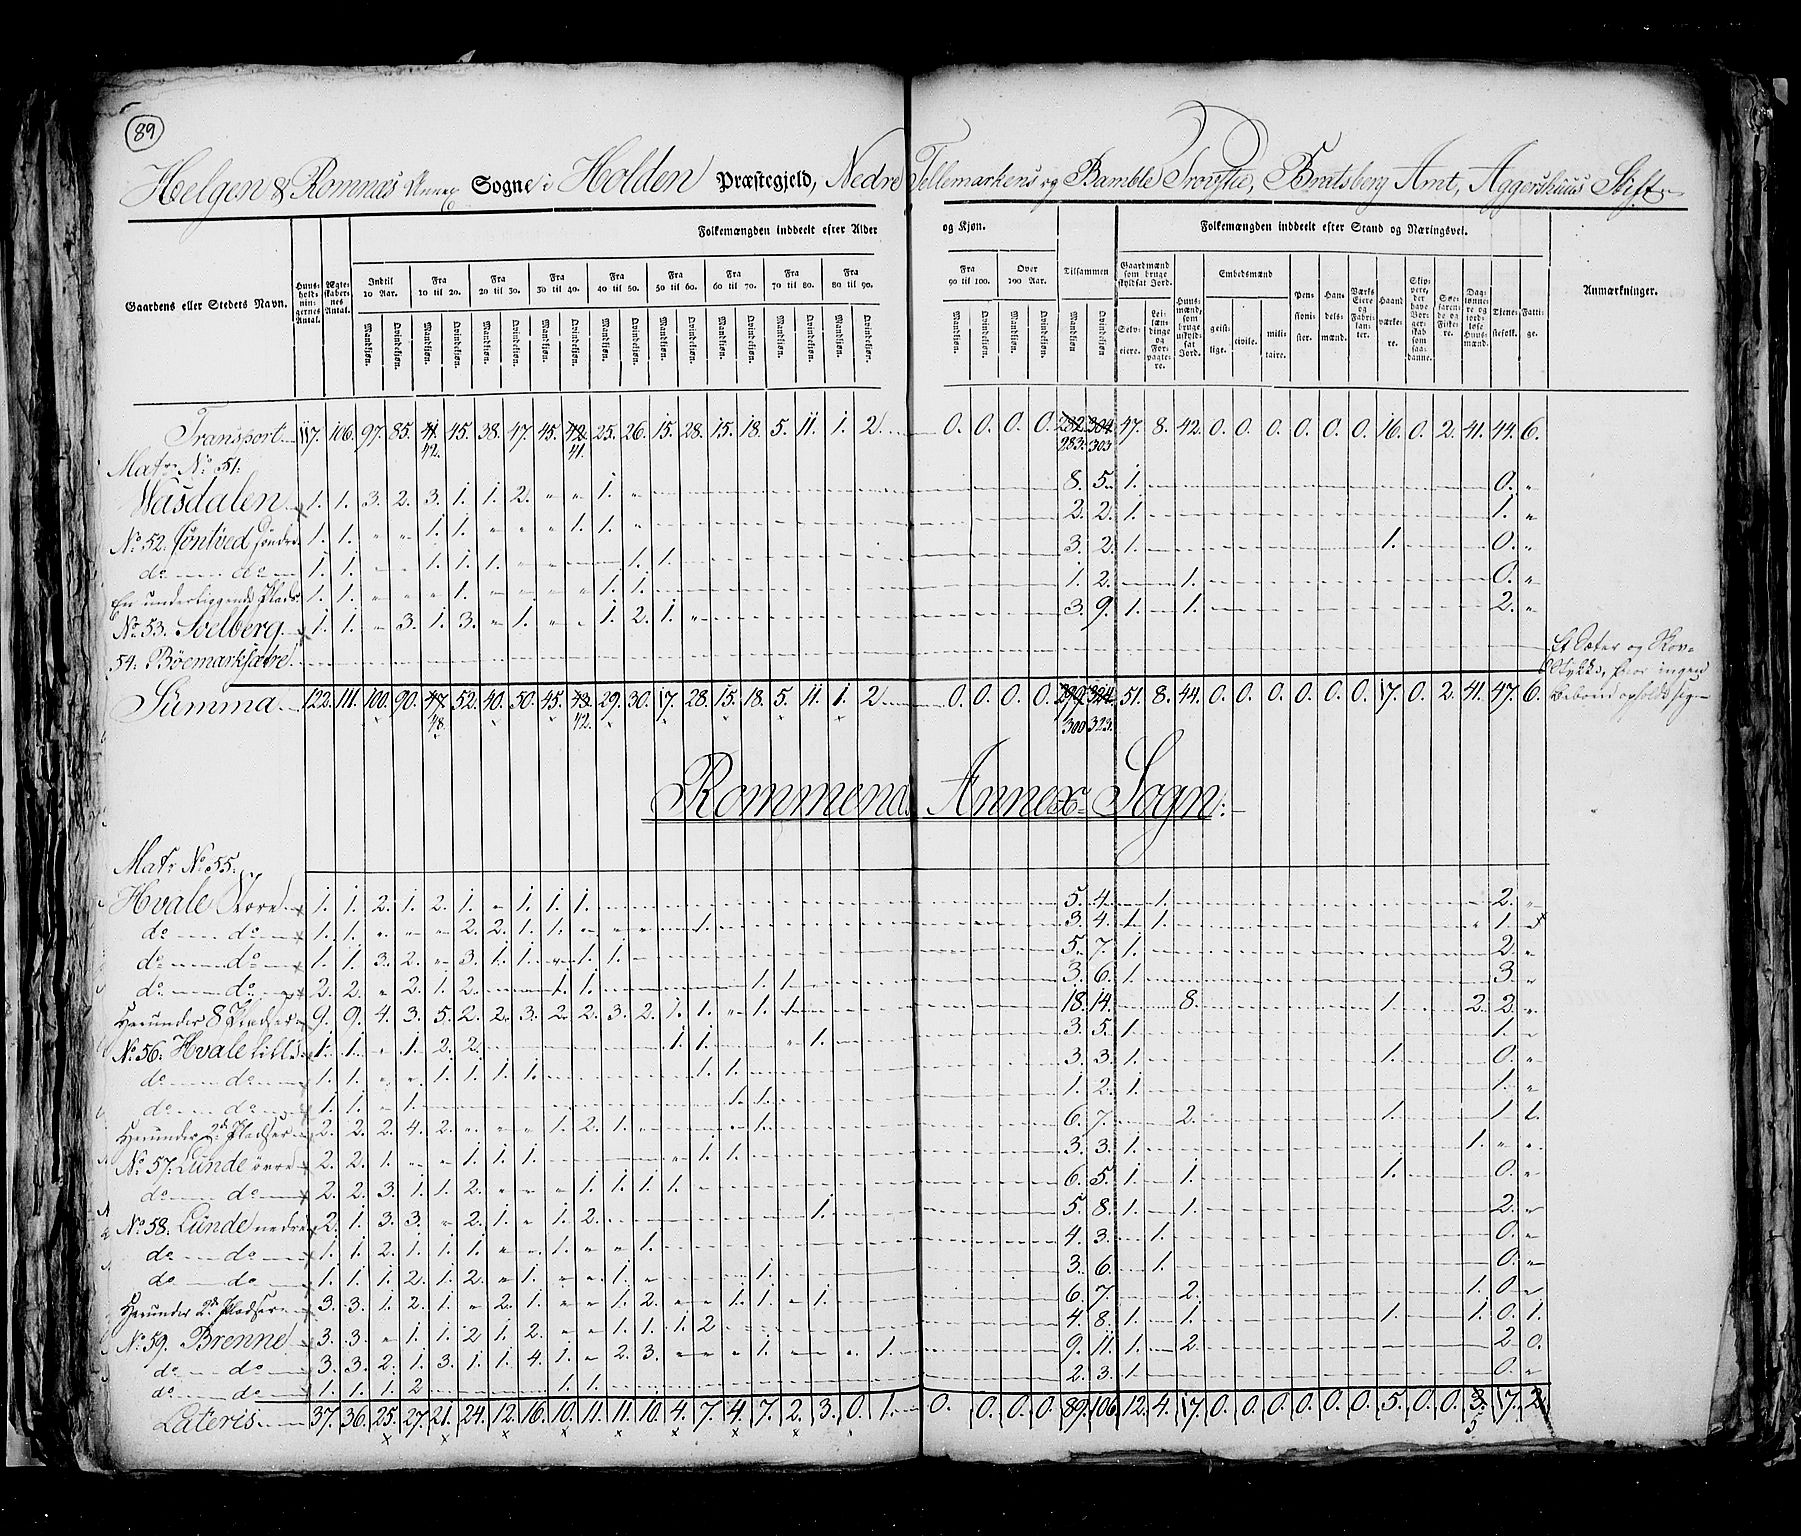 89
Helgen & Romnæs Annex Sogne i Holden Præstegjeld, Nedre Tellemarkens og Bamble Provstie, Bratsberg Amt, Aggershuus Stift
Folkemængden inddeelt efter Alder og Kjøn. Folkemængden inddeelt efter Stand og Næringsvei.
Gaardens eller Stedets Navn. Huusholdningernes Antal. Ægteskabernes Antal. Indtil 10 Aar. Fra 10 til 20. Fra 20 til 30. Fra 30 til 40. Fra 40 til 50. Fra 50 til 60. Fra 60 til 70. Fra 70 til 80. Fra 80 til 90. Fra 90 til 100. Over 100 Aar. Tilsammen Gaardmænd som bruge skyldsat Jord. Huusmænd, som bruge uskyldsat Jord. Embedsmænd Pensionister. Handelsmænd. Værks Eiere og Fabrikanter. Haandværkere. Skippere, der have Borgerskab som saadanne. Søefarende og Fiskere. Daglønnere og jordløse Huusmænd. Tjenestefolk. Fattige. Anmærkninger.
Mandkjøn. Qvindekjøn. Mandkjøn. Qvindekjøn. Mandkjøn. Qvindekjøn. Mandkjøn. Qvindekjøn. Mandkjøn. Qvindekjøn. Mandkjøn. Qvindekjøn. Mandkjøn. Qvindekjøn. Mandkjøn. Qvindekjøn. Mandkjøn. Qvindekjøn. Mandkjøn. Qvindekjøn. Mandkjøn. Qvindekjøn. Mandkjøn Qvindekjøn Selveiere. Leilændinge og Forpagtere. geistlige. civile. militaire.
Transport 117. 106. 97. 85. 41. 45. 38. 47. 45. 42. 25. 26. 15. 28. 15. 18. 5. 11. 1. 2. 0. 0. 0. 0. 282. 304. 47. 8. 42. 0. 0. 0. 0. 0. 0. 16. 0. 2. 41. 44. 6.
42. 41. 283. 303
Matr No 51.
Wasdalen 1. 1. 3. 2. 3. 1. 1. 2. " " 1. " 8. 5. 1. 0. "
No 52. Jøntved søndre 1. 1. " " 1. 1. " " " 1. 1. " 2. 2. 1. 1. "
do do 1. 1. 1. 1. 1. 1. 1. 3. 2. 1. 1. 0. "
En underliggende Plads 1. 1. " " " 1. 1. 1. 1. 2. 1. 0. "
No 53. Solberg 1. 1. " 3. 1. 3. " 1. " " 1. 2. 1. " 3. 9. 1. 1. 2. "
54. Bøemarksætre Et Sæter og Skov
Summa 122. 111. 100. 90. 47. 52. 40. 50. 45. 43. 29. 30. 17. 28. 15. 18. 5. 11. 1. 2 0. 0. 0. 0. 299. 324. 51. 8. 44. 0. 0. 0. 0. 0. 0. 17. 0. 2. 41. 47. 6.
48. 42. 300 323.
Rommenes Annex Sogn:
Matr No 55.
Hvale Nore 1. 1. 2. 1. 2. 1. " 1. 1. 1. 5. 4. 1. 2. "
do do 1. 1. " " " 2. 2. 1. 1. 1. 3. 4. 1. 1. " 1.
do do 1. 1. 3. 2. " 3. 1. 1. " 1. 1. 5. 7. 1. 2. "
do do 2. 2. " 2. 1. 2. 1. 1. 1. 1. 3. 6. 1. 3. "
Herunder 8 Pladser 9. 9. 4. 3. 5. 2. 2. 3. 2. 2. 3. 2. 1. 1. " 1. 1. 18. 14. 8. 1. 2. 2. "
No 56. Hvale lille 1. 1. " 1. 2. 2. 1. 1. " 1. 3. 5. 1. 1. "
do do 1. 1. " " 1. 1. 1. 1. 1. 1. 3. 3. 1. 1. 0. "
do do 1. 1. " 1. 1. 1. 1. 2. 1. 1. "
Herunder 2de Pladser 2. 2. 2. 4. 2. " " " 1. 2. 1. 1. 6. 7. 2. 1. 1. 1.
No 57. Lunde øvre 2. 2. 1. " " 1. 1. 1. 1. 1. 3. 3. 1. 1. " "
do do 2. 2. 3. 1. 1. 2. " " " 1. 1. 1. 1. 6. 5. 1. 1. 1. 0. "
No 58. Lunde nedre 2. 1. 3. 3. " 2. 1. " 1. 2. 1. 5. 8. 1. 1. 2. "
do do 1. 1. 2. 1. 1. 1. " " 1. " " 1. 4. 3. 1. 0. "
do do 1. 1. 1. 2. 1. 2. " 1. " " 1. " 1. 3. 6. 1. 0. "
Herunder 2de Pladser 3. 3. 1. 2. 1. " 2. 1. " " 1. 2. " " 1. 1. " 1. 6. 7. 2. 1. 0. "
No 59. Brenne 3. 3. " 1. 1. 2 1. 2. " " 1. 1. 1. 2 4. 8. 1. 1. 1. 1. 0. 1.
do do 3. 3. 2. 1. 3. 1. 1. 4. 1. " 2. 3. " " " 1. " " " 1. 9. 11. 1. 2. 2 0.
do do 1. 1. 1. 2 1. 1. 2. 3. 1 0. "
Lateris 37. 36. 25. 27. 21. 24. 12. 16. 10. 11. 11. 10. 4. 7. 4. 7. 2. 3. 0. 1. 0. 0. 0. 0. 89. 106. 12. 4. 17. 0. 0. 0. 0. 0. 0. 5. 0. 0. 3. 17. 2.
5